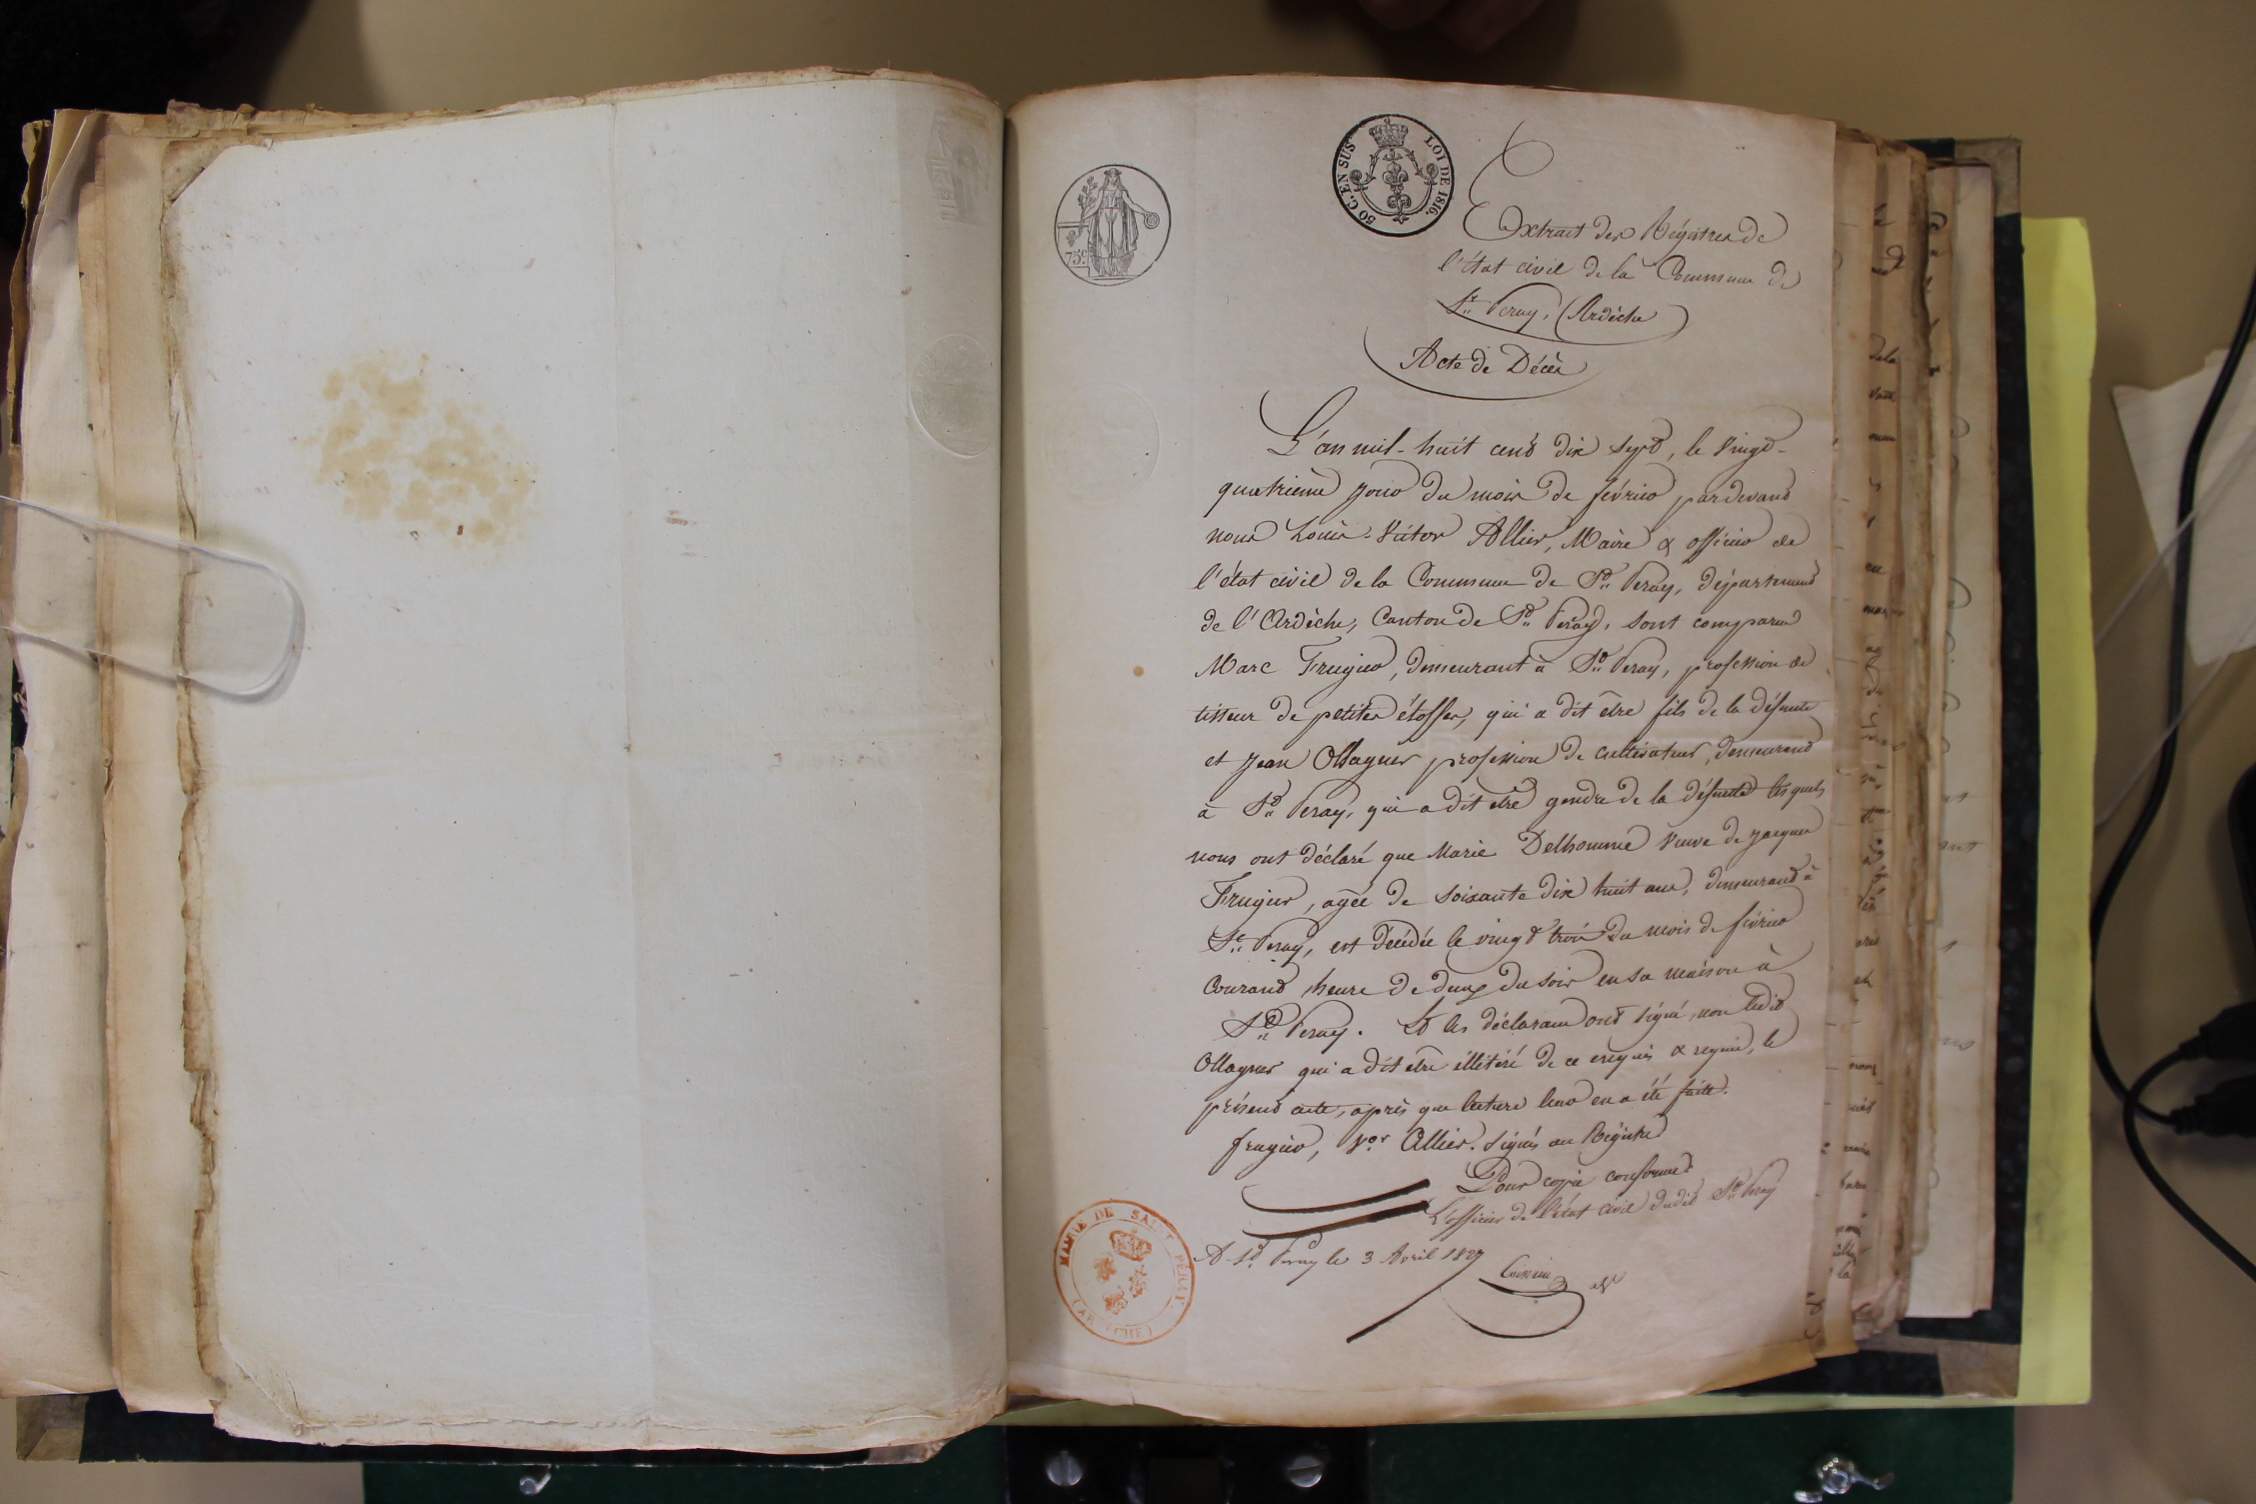 50 C. EN SUS LOI DE 1816.
75c
Extrait des Régistres de
l'état civil de la Commune de
St. Peray, (Ardèche)
Acte de Décès
L'an mil-huit cent dix sept, le vingt-
quatrième jour du mois de février pardevant
nous Louis-Victor Allier, Maire & officier de
l'état civil de la Commune de St. Peray, département
de l'Ardèche, Canton de St. Peray, sont comparus
Marc Frugier, demeurant à St. Peray, profession de
tisseur de petites étoffes, qui a dit être fils de la défunte
et Jean Ollagner profession de cultivateur, demeurant
à St. Peray, qui a dit etre gendre de la défunte lesquels
nous ont déclaré que Marie Delhomme veuve de jacques
Frugier, agée de soixante dix huit ans, demeurant à
St. Peray, est décédée le vingt trois du mois de février
Courant heure de deux du soir en sa maison à
St. Peray. Et les déclarans ont signé, non ledit
Ollagner qui a dit etre illitéré de ce enquis & requis, le
présent acte, après que lecture leur en a été faitte.
frugier, Vor Allier. signés au Régistre
Pour copie conforme
L'officier de l'état civil dudit St Peray
A St. Peray le 3 Avril 1827
MAIRIE DE SAINT PERAY
(ARDÈCHE)